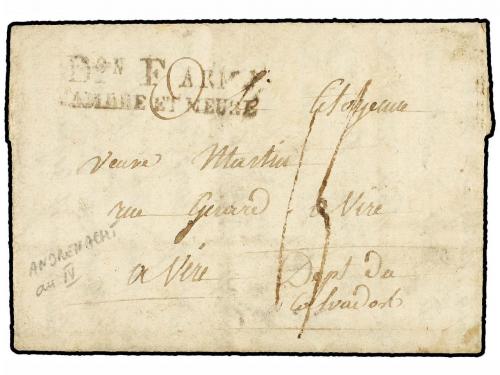 Don F ARMÉE
SAMBRE ET MEUSE
Citoyenne
veuve Martin
rue Girard a Vire
a Vire
Dept du
Calvados
ANDRENACHT
an IV